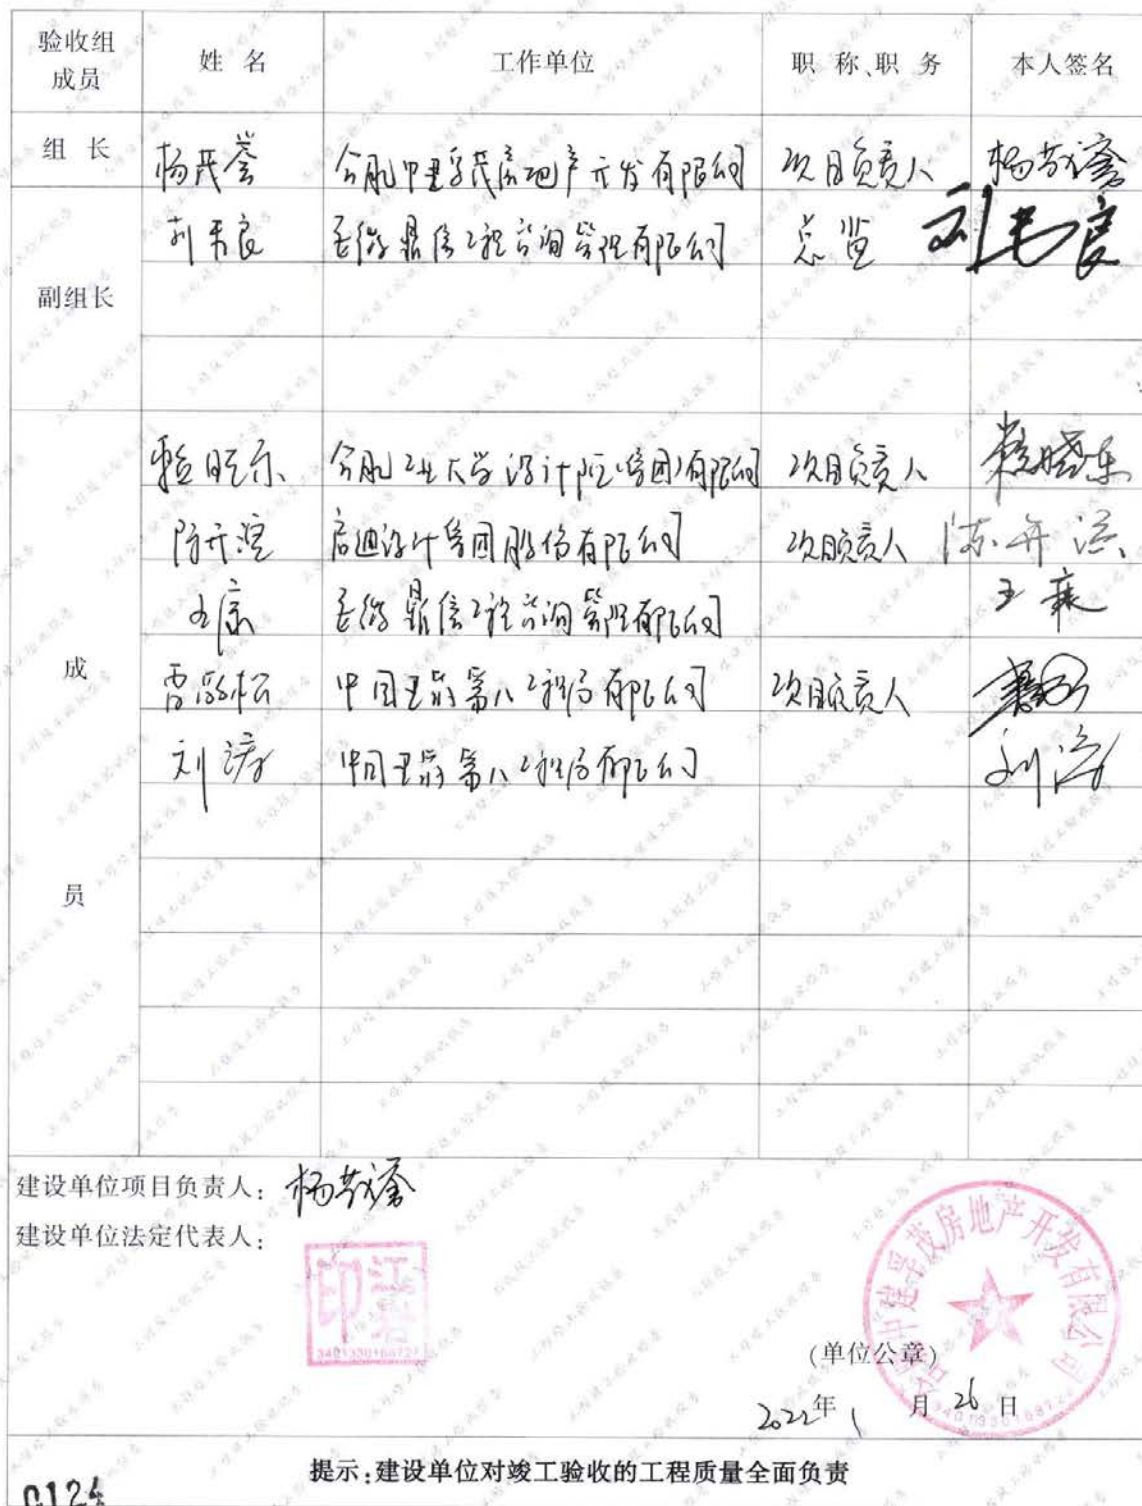 验收组成员 姓 名 工作单位 职 称、职 务 本人签名
组 长 杨茂誉 合肥中建孚茂房地产开发有限公司 项目负责人 杨茂誉
副组长 刘秀良 鼎信工程咨询管理有限公司 总监
成员
赖晓东 合肥工业大学设计院(集团)有限公司 项目负责人 赖晓东
陈开滨 启迪设计集团股份有限公司 项目负责人
王康 鼎信工程咨询管理有限公司 王康
雷敬松 中国建筑第八工程局有限公司 项目负责人
刘涛 中国建筑第八工程局有限公司 刘涛
建设单位项目负责人: 杨茂誉
建设单位法定代表人:
江 印
3401330168727
合肥中建孚茂房地产开发有限公司
(单位公章)
2022年 1 月 26 日
提示:建设单位对竣工验收的工程质量全面负责
0124